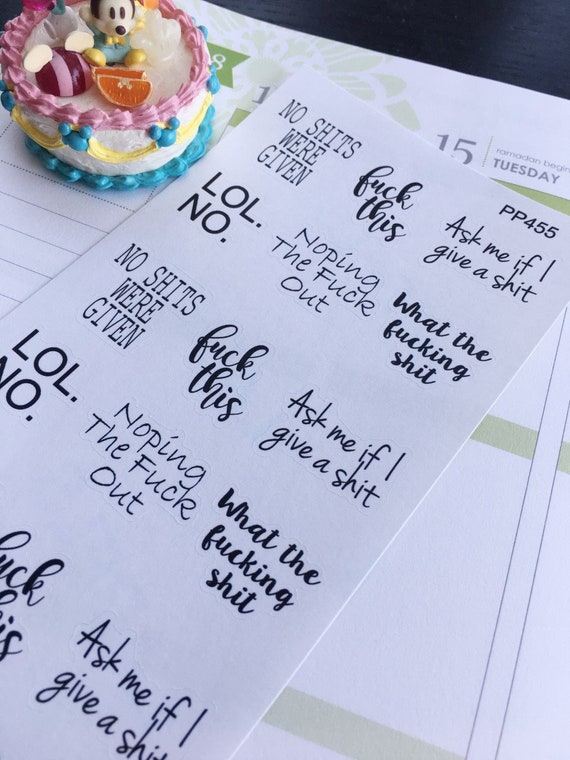 8
15
ramadan begin
TUESDAY
PP455
NO SHITS
WERE
GIVEN
fuck
this
Ask me if I
give a shit
LOL.
NO.
Noping
The Fuck
Out
What the
fucking
shit
NO SHITS
WERE
GIVEN
fuck
this
Ask me if I
give a shit
LOL.
NO.
Noping
The Fuck
Out
What the
fucking
shit
fuck
this
Ask me if I
give a shit